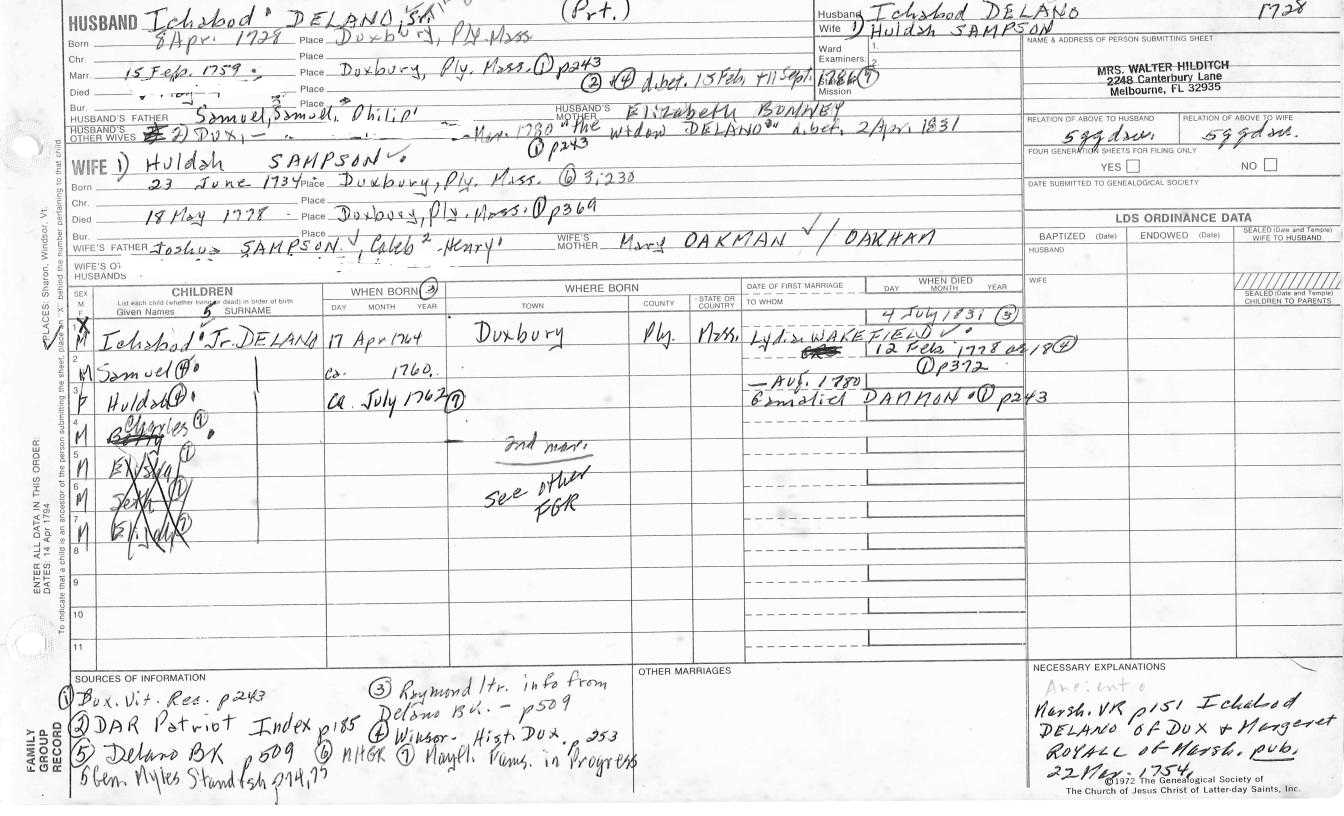 HUSBAND Ichabod DELANO, Sr. (Prt.)
Born 8 Apr. 1728 Place Duxbury, Ply. Mass
Chr. Place
Marr. 15 Feb. 1759 Place Duxbury, Ply. Mass. ① p243
Died Place ② ④ d. bet. 15 Feb. + 11 Sept. 1786 ⑦
Bur. Place
HUSBAND'S FATHER Samuel, Samuel, Philip HUSBAND'S MOTHER Elizabeth BONNEY
HUSBAND'S OTHER WIVES 2) Dux, - Mar. 1780 "the widow DELANO" d. bet. 2 Apr. 1831
① p243
WIFE 1) Huldah SAMPSON
Born 23 June 1734 Place Duxbury, Ply. Mass. ⑥ 3:230
Chr. Place
Died 18 May 1778 Place Duxbury, Ply. Mass. ① p369
Bur. Place
WIFE'S FATHER Joshua SAMPSON, Caleb 2 Henry 1 WIFE'S MOTHER Mary OAKMAN / OAKHAM
WIFE'S OT
HUSBANDS
Husband Ichabod DELANO 1728
Wife 1) Huldah SAMPSON
Ward 1.
Examiners: 2.
Mission
NAME & ADDRESS OF PERSON SUBMITTING SHEET
MRS. WALTER HILDITCH
2248 Canterbury Lane
Melbourne, FL 32935
RELATION OF ABOVE TO HUSBAND RELATION OF ABOVE TO WIFE
5ggdau. 5ggdau.
FOUR GENERATION SHEETS FOR FILING ONLY
YES NO
DATE SUBMITTED TO GENEALOGICAL SOCIETY
LDS ORDINANCE DATA
BAPTIZED (Date) ENDOWED (Date) SEALED (Date and Temple) WIFE TO HUSBAND
HUSBAND
WIFE
SEALED (Date and Temple) CHILDREN TO PARENTS
SEX M F
CHILDREN
List each child (whether living or dead) in order of birth
Given Names SURNAME
WHEN BORN ③
DAY MONTH YEAR
WHERE BORN
TOWN COUNTY STATE OR COUNTRY
DATE OF FIRST MARRIAGE
TO WHOM
WHEN DIED
DAY MONTH YEAR
4 July 1831 ⑤
1 X M Ichabod 5 Jr. DELANO 17 Apr 1764 Duxbury Ply. Mass. Lydia WAKEFIELD
12 Feb. 1778 or 18 ④
2 M Samuel ④ ca. 1760. ① p372
— Aug. 1780
3 F Huldah ④ ca. July 1762 ⑦ Gamaliel DAMMON ① p243
4 M Charles ⑦
2nd mar.
5 M Elisha ①
see other
6 M Seth ①
FGR
7 M Elijah ⑦
8
9
10
11
SOURCES OF INFORMATION
① Dux. Vit. Rec. p243
② DAR Patriot Index p185
③ Raymond ltr. info from Delano Bk. - p509
④ Winsor - Hist. Dux. p253
⑤ Delano BK p509 ⑥ NHGR ⑦ Mayfl. Fams. in Progress
5 Gen. Myles Standish p74,75
OTHER MARRIAGES
NECESSARY EXPLANATIONS
Marsh. VR p151 Ichabod
DELANO of Dux + Margaret
ROYALL of Marsh. pub.
22 Mar. 1754
©1972 The Genealogical Society of
The Church of Jesus Christ of Latter-day Saints, Inc.
ENTER ALL DATA IN THIS ORDER:
DATES: 14 Apr 1794
PLACES: Sharon, Windsor, Vt.
To indicate that a child is an ancestor of the person submitting the sheet, place an "X" behind the number pertaining to that child
FAMILY
GROUP
RECORD